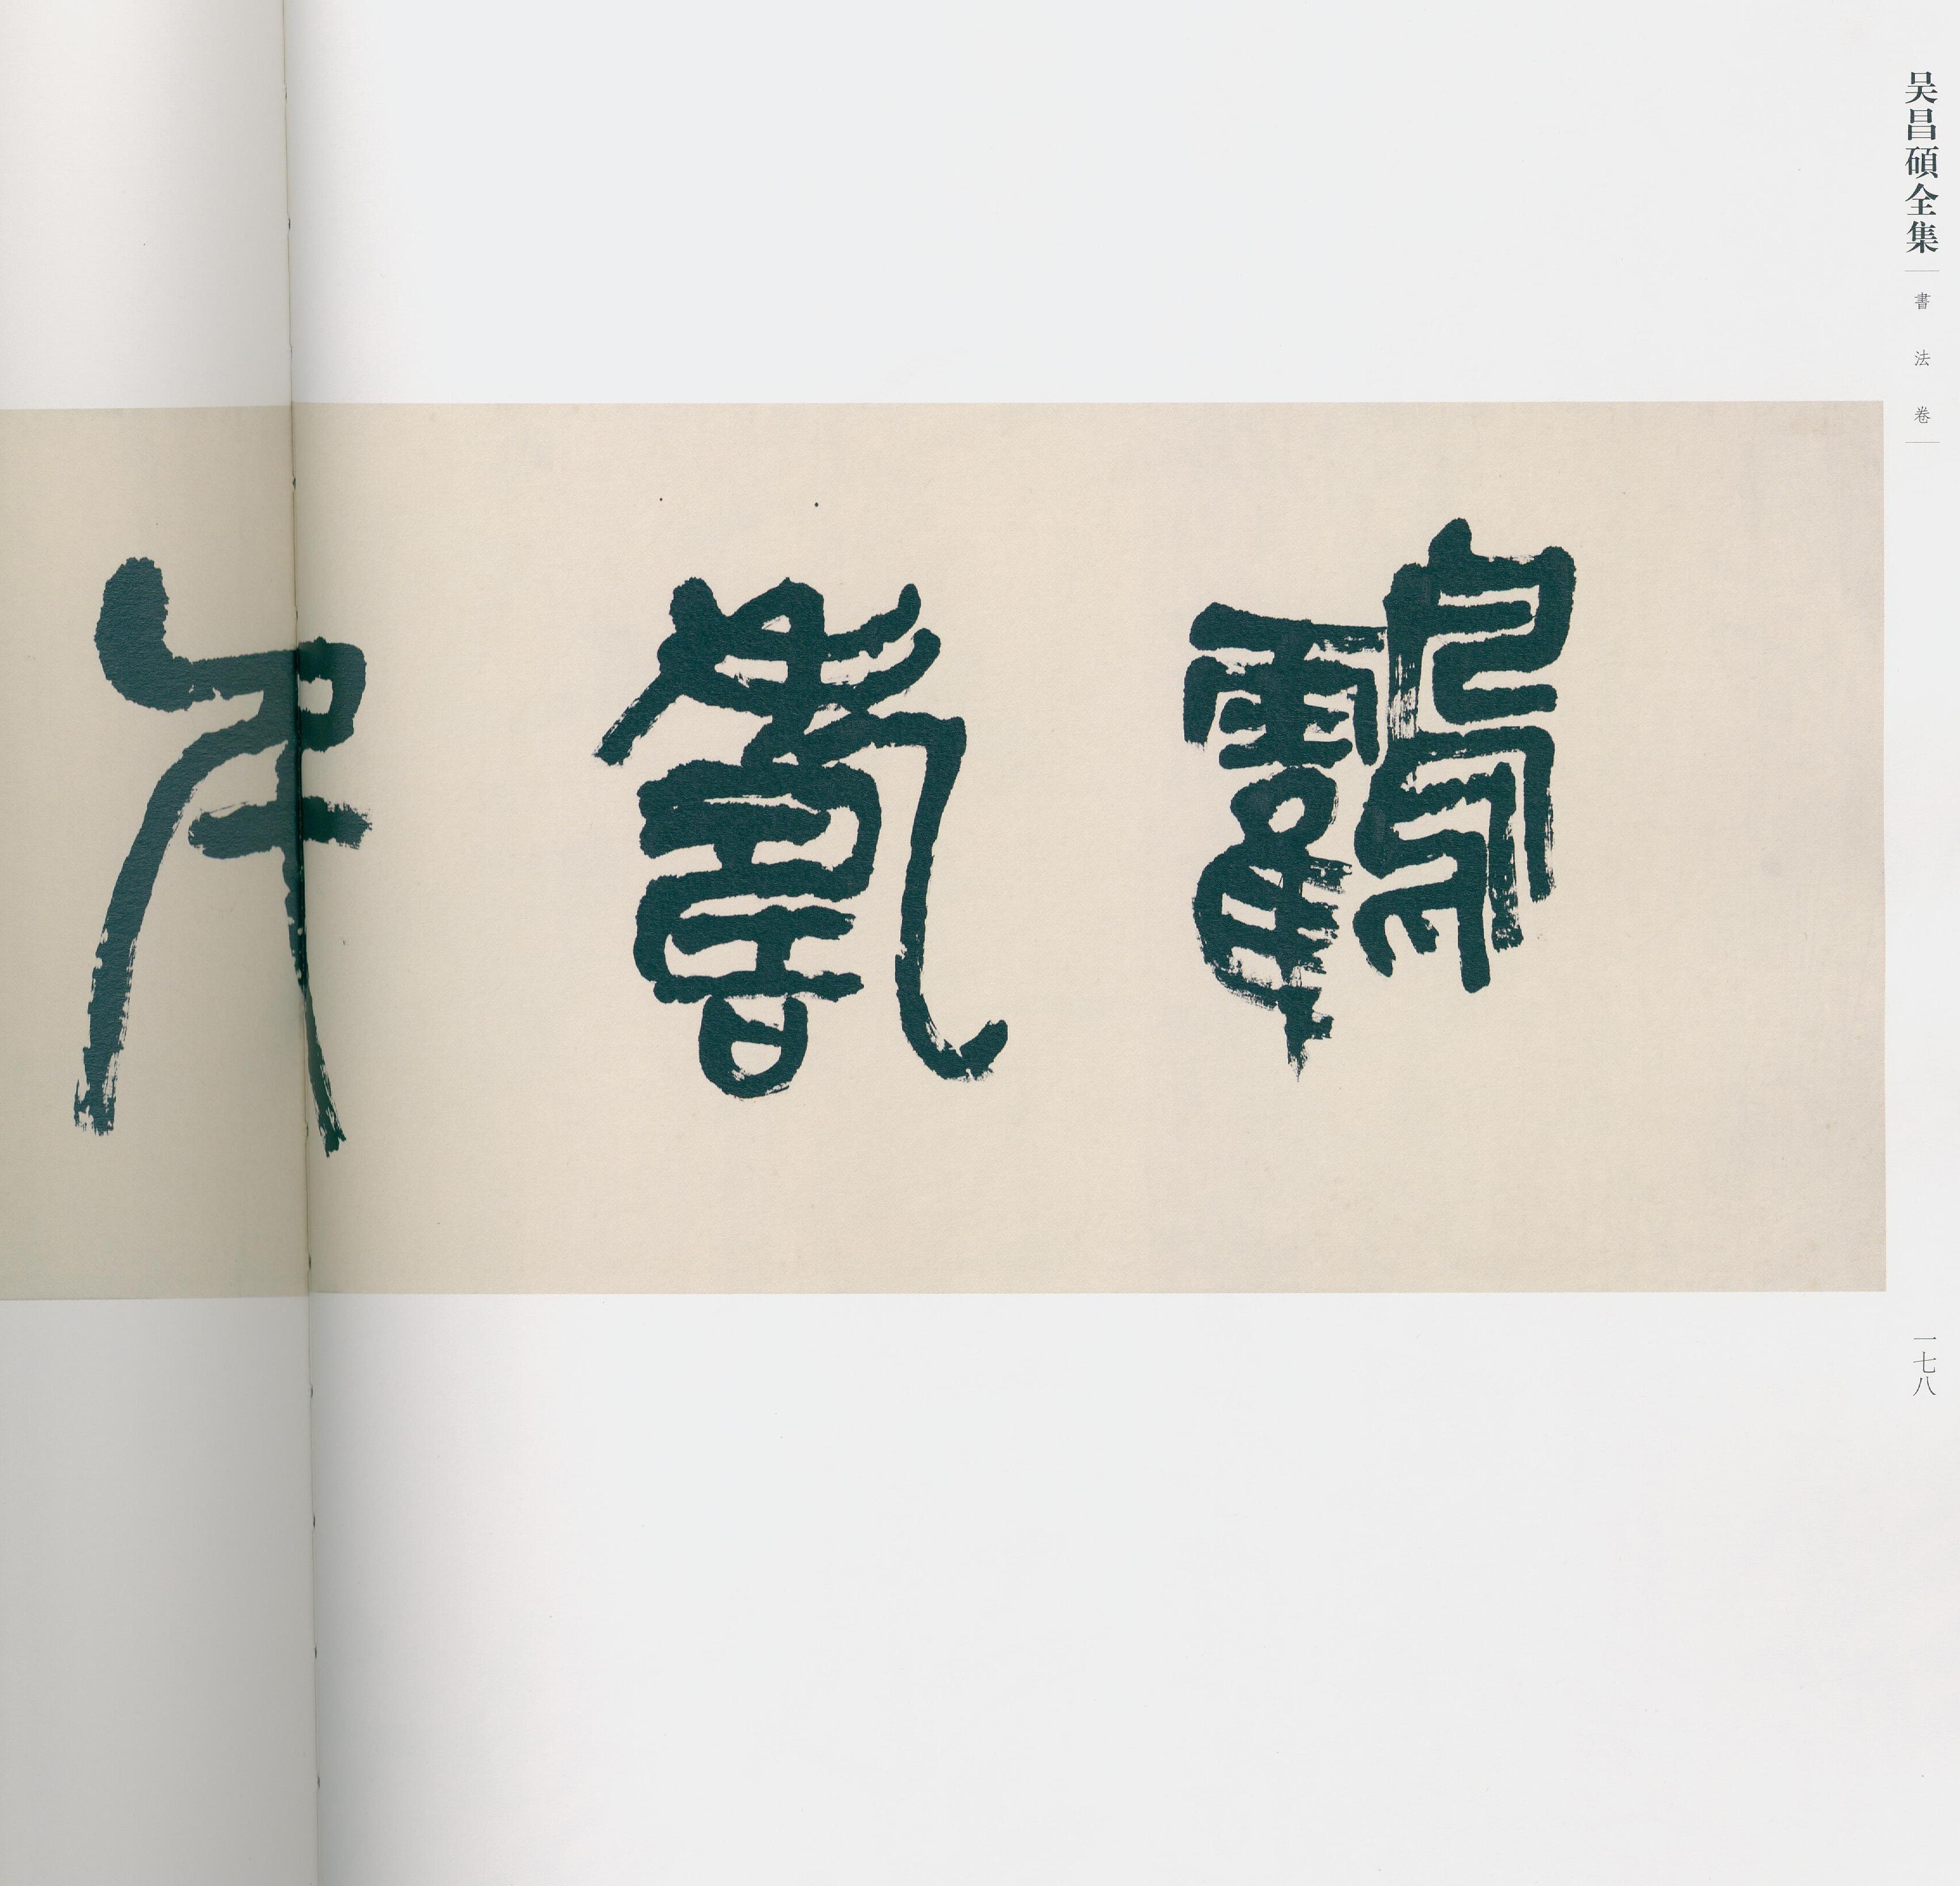 吴昌碩全集
書法卷
鶴壽
一七八